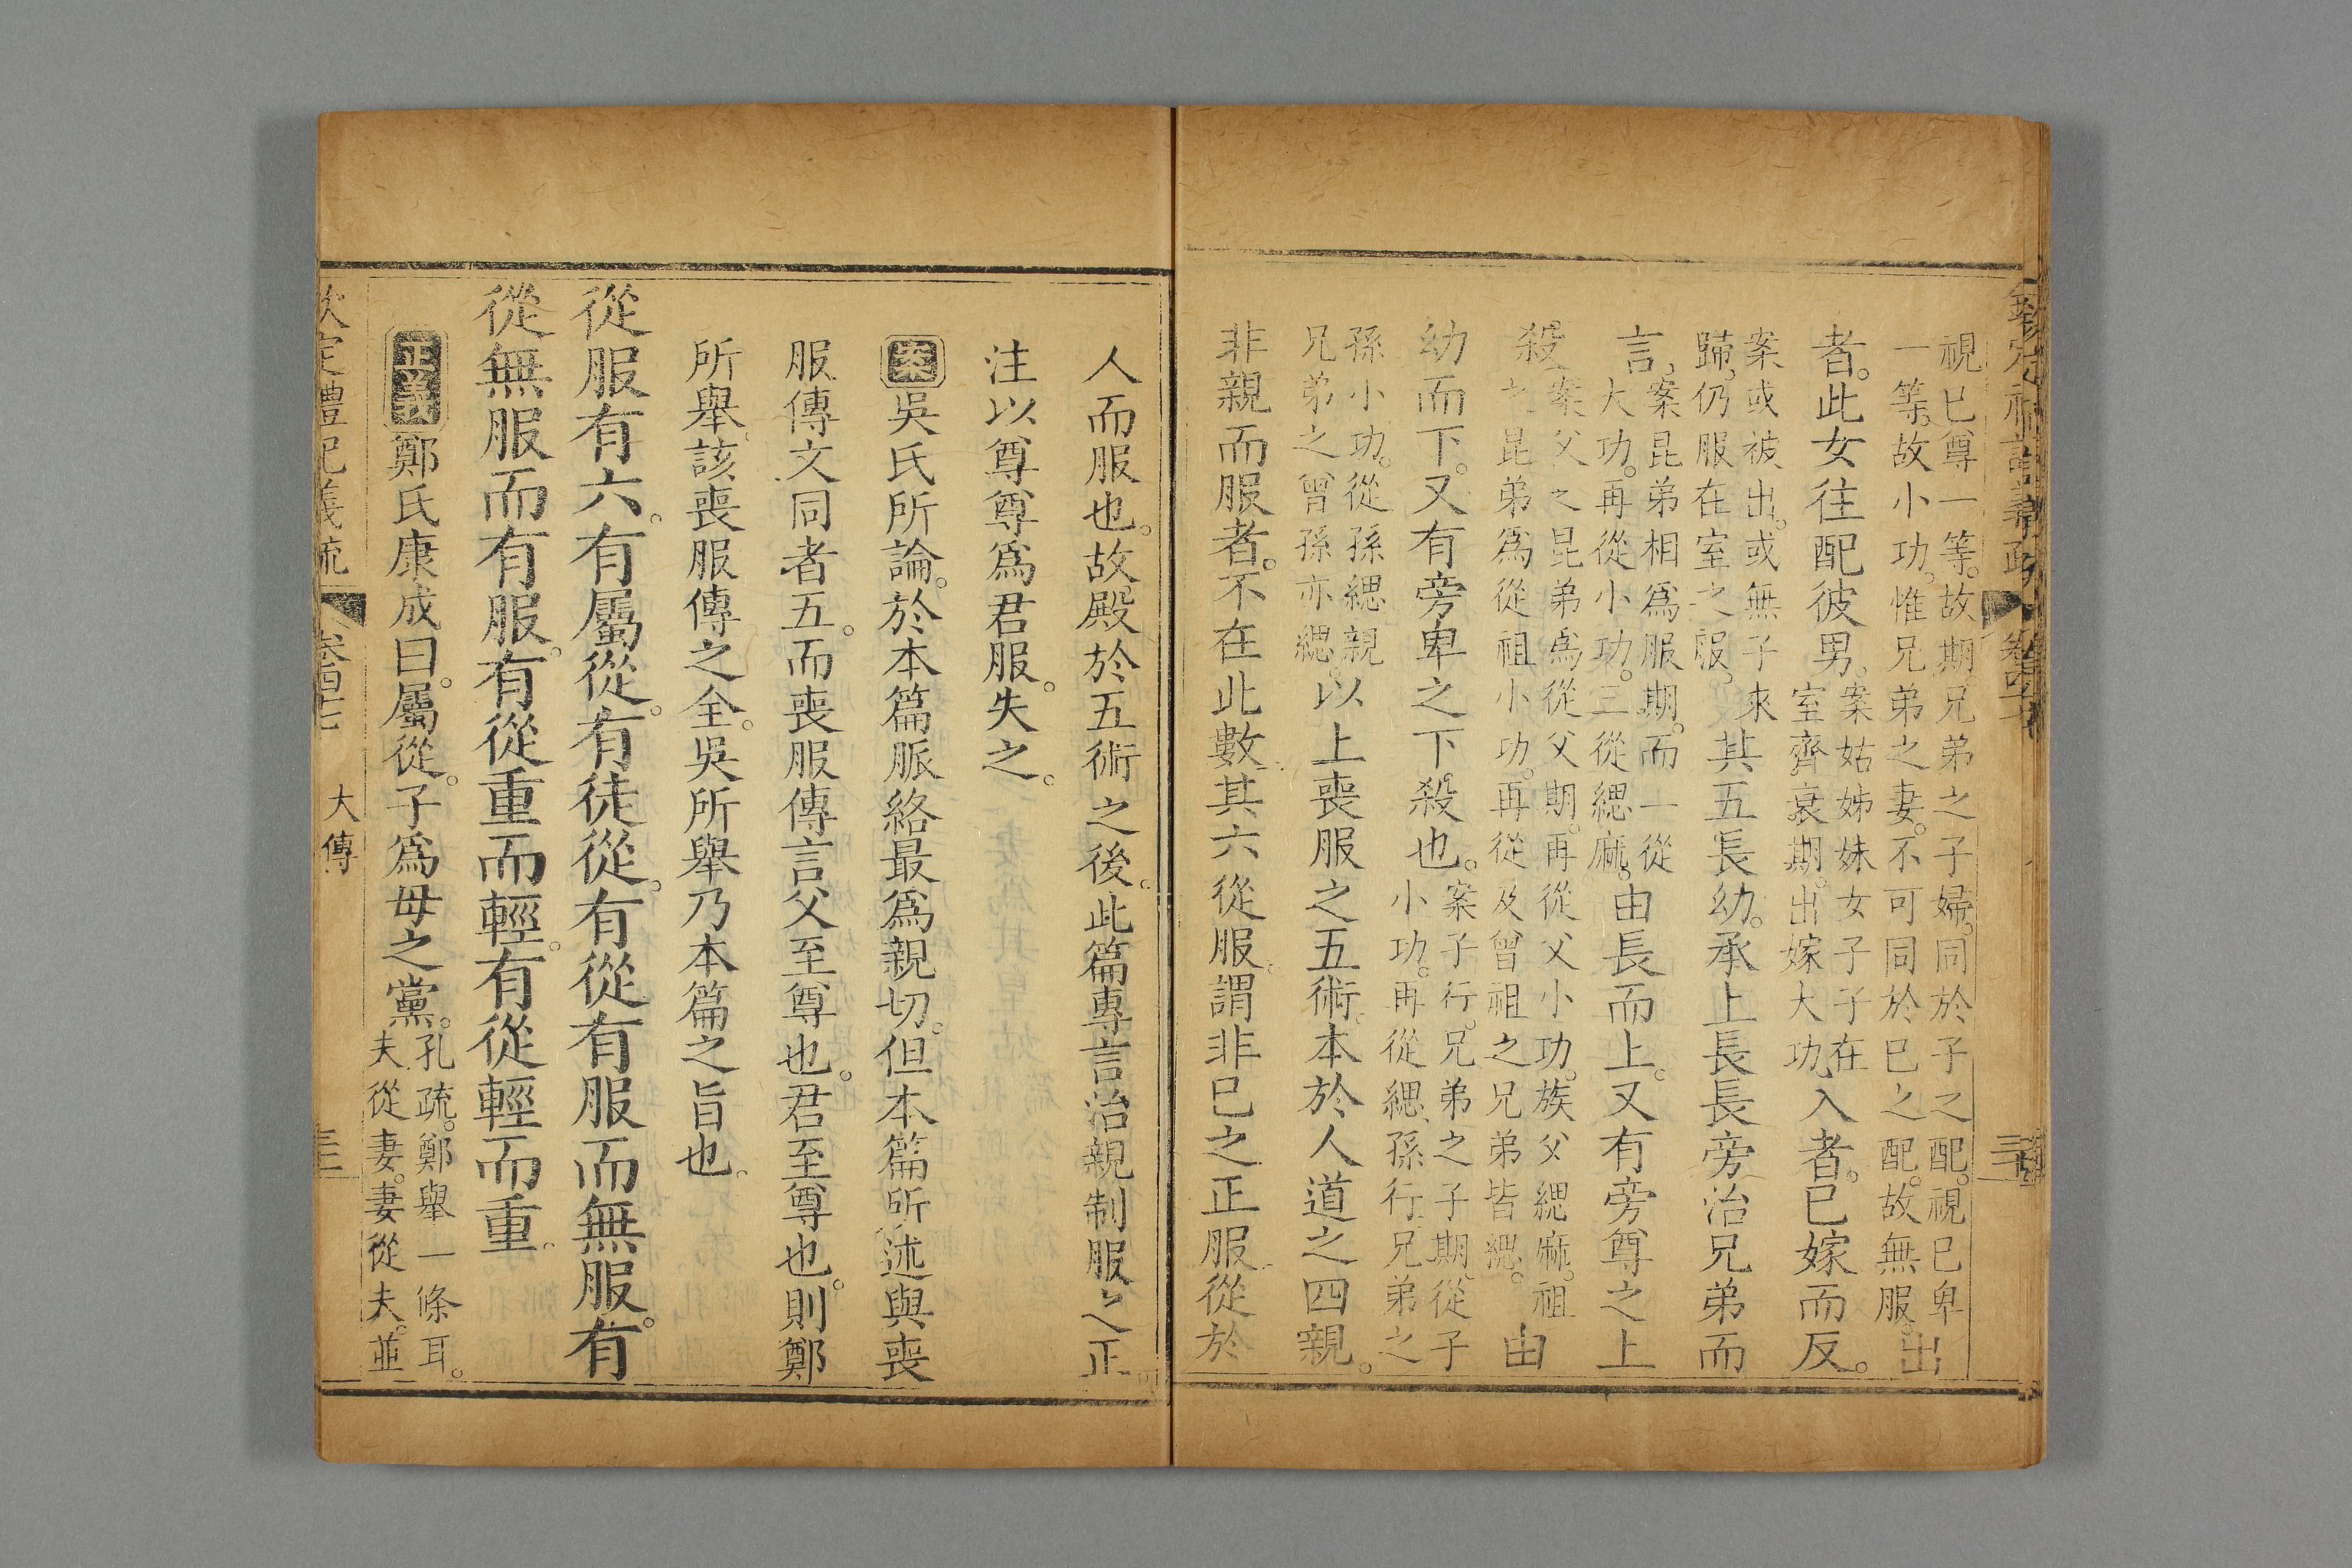 視已尊一等。故期。兄弟之子婦。同於子之配。視已卑
一等。故小功。惟兄弟之妻。不可同於已之配。故無服。出
者。此女往配彼男。案姑姊妹女子子在
室齊衰期。出嫁大功、入者。已嫁而反。
案或被出。或無子來
歸。仍服在室之服。其五長幼。承上長長旁治兄弟而
言、案昆弟相爲服期。而一從
大功。再從小功。三從緦麻。由長而上。又有旁尊之上
殺。案父之昆弟爲從父期。再從父小功。族父緦麻。祖
之昆弟爲從祖小功。再從及曾祖之兄弟皆緦。由
幼而下。又有旁卑之下殺也。案子行。兄弟之子期。從子
小功。再從緦、孫行兄弟之
孫小功。從孫緦親
兄弟之曾孫亦緦。以上喪服之五術。本於人道之四親。
非親而服者。不在此數。其六從服。謂非已之正服。從於
人而服也。故殿於五術之後。此篇專言治親制服之正
注以尊尊爲君服。失之。
案吳氏所論。於本篇脈絡最爲親切。但本篇所述與喪
服傳文同者五。而喪服傳言父至尊也。君至尊也。則鄭
所舉。該喪服傳之全。吳所舉乃本篇之旨也。
從服有六。有屬從。有徒從。有從有服而無服。有
從無服而有服。有從重而輕。有從輕而重。
正義鄭氏康成曰。屬從。子爲母之黨。孔疏。鄭舉一條耳。
夫從妻。妻從夫。並
欽定禮記義疏
卷四十七
大傳
三三